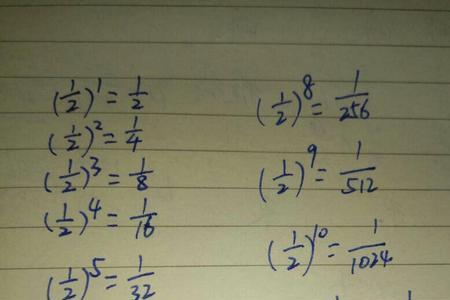 (1/2)^1 = 1/2
(1/2)^2 = 1/4
(1/2)^3 = 1/8
(1/2)^4 = 1/16
(1/2)^5 = 1/32
(1/2)^8 = 1/256
(1/2)^9 = 1/512
(1/2)^10 = 1/1024